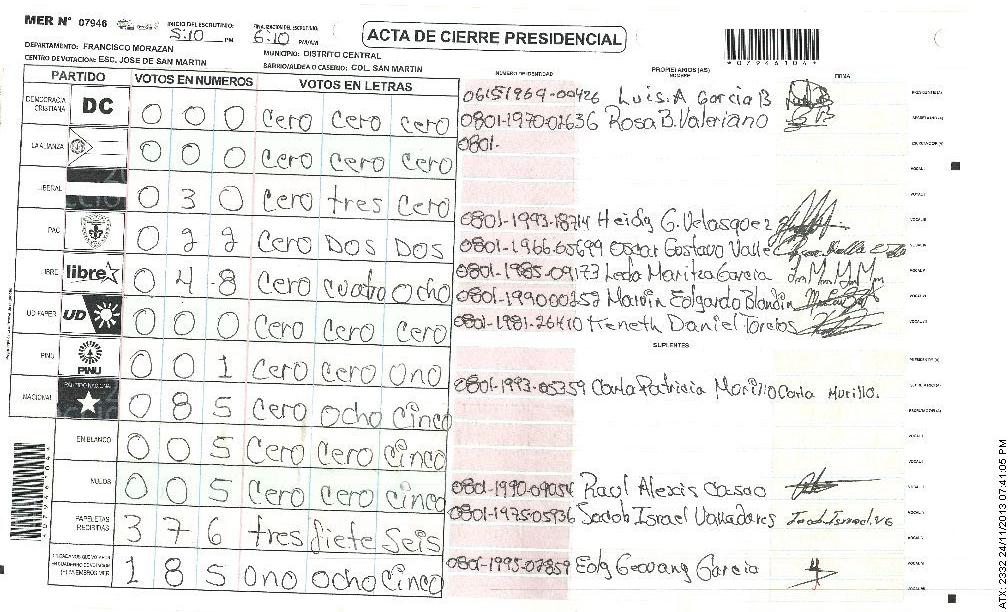 MER N° 07946
INICIO DEL ESCRUTINIO: 5:10 PM
FINALIZACION DEL ESCRUTINIO: 6:10 PM/AM
ACTA DE CIERRE PRESIDENCIAL
*07946104*
DEPARTAMENTO: FRANCISCO MORAZAN
MUNICIPIO: DISTRITO CENTRAL
CENTRO DE VOTACION: ESC. JOSE DE SAN MARTIN
BARRIO/ALDEA O CASERIO: COL. SAN MARTIN
PARTIDO VOTOS EN NUMEROS VOTOS EN LETRAS
NUMERO DE IDENTIDAD PROPIETARIOS (AS) NOMBRE FIRMA
DEMOCRACIA CRISTIANA DC 0 0 0 cero cero cero
LA ALIANZA 0 0 0 cero cero cero
LIBERAL 0 3 0 cero tres cero
PAC 0 2 2 cero DOS DOS
LIBRE libre 0 4 8 cero cuatro ocho
UD FAPER UD 0 0 0 cero cero cero
PINU PINU 0 0 1 cero cero ono
NACIONAL PARTIDO NACIONAL 0 8 5 cero ocho cinco
EN BLANCO 0 0 5 cero cero cinco
NULOS 0 0 5 cero cero cinco
PAPELETAS RECIBIDAS 3 7 6 tres siete seis
1 8 5 ono ocho cinco
06151969-00426 Luis. A Garcia B
0801-1970-02636 Rosa B. Valeriano
0801-
0801-1993-18714 Heidy G. Velasquez
0801-1966-05699 Oscar Gustavo Valle
0801-1985-09173 Leda Maritza Garcia
0801-199000252 Marvin Edgardo Blandin
0801-1981-26410 Keneth Daniel Torelos
SUPLENTES
0801-1993-05359 Carla Patricia Morillo Carla Murillo.
0801-1990-09054 Raul Alexis Casao
0801-1975-05936 Jacob Israel Valladares Jacob Israel. VG
0801-1995-07859 Edy Geovany Garcia
ATX: 2332 24/11/2013 07:41:05 PM